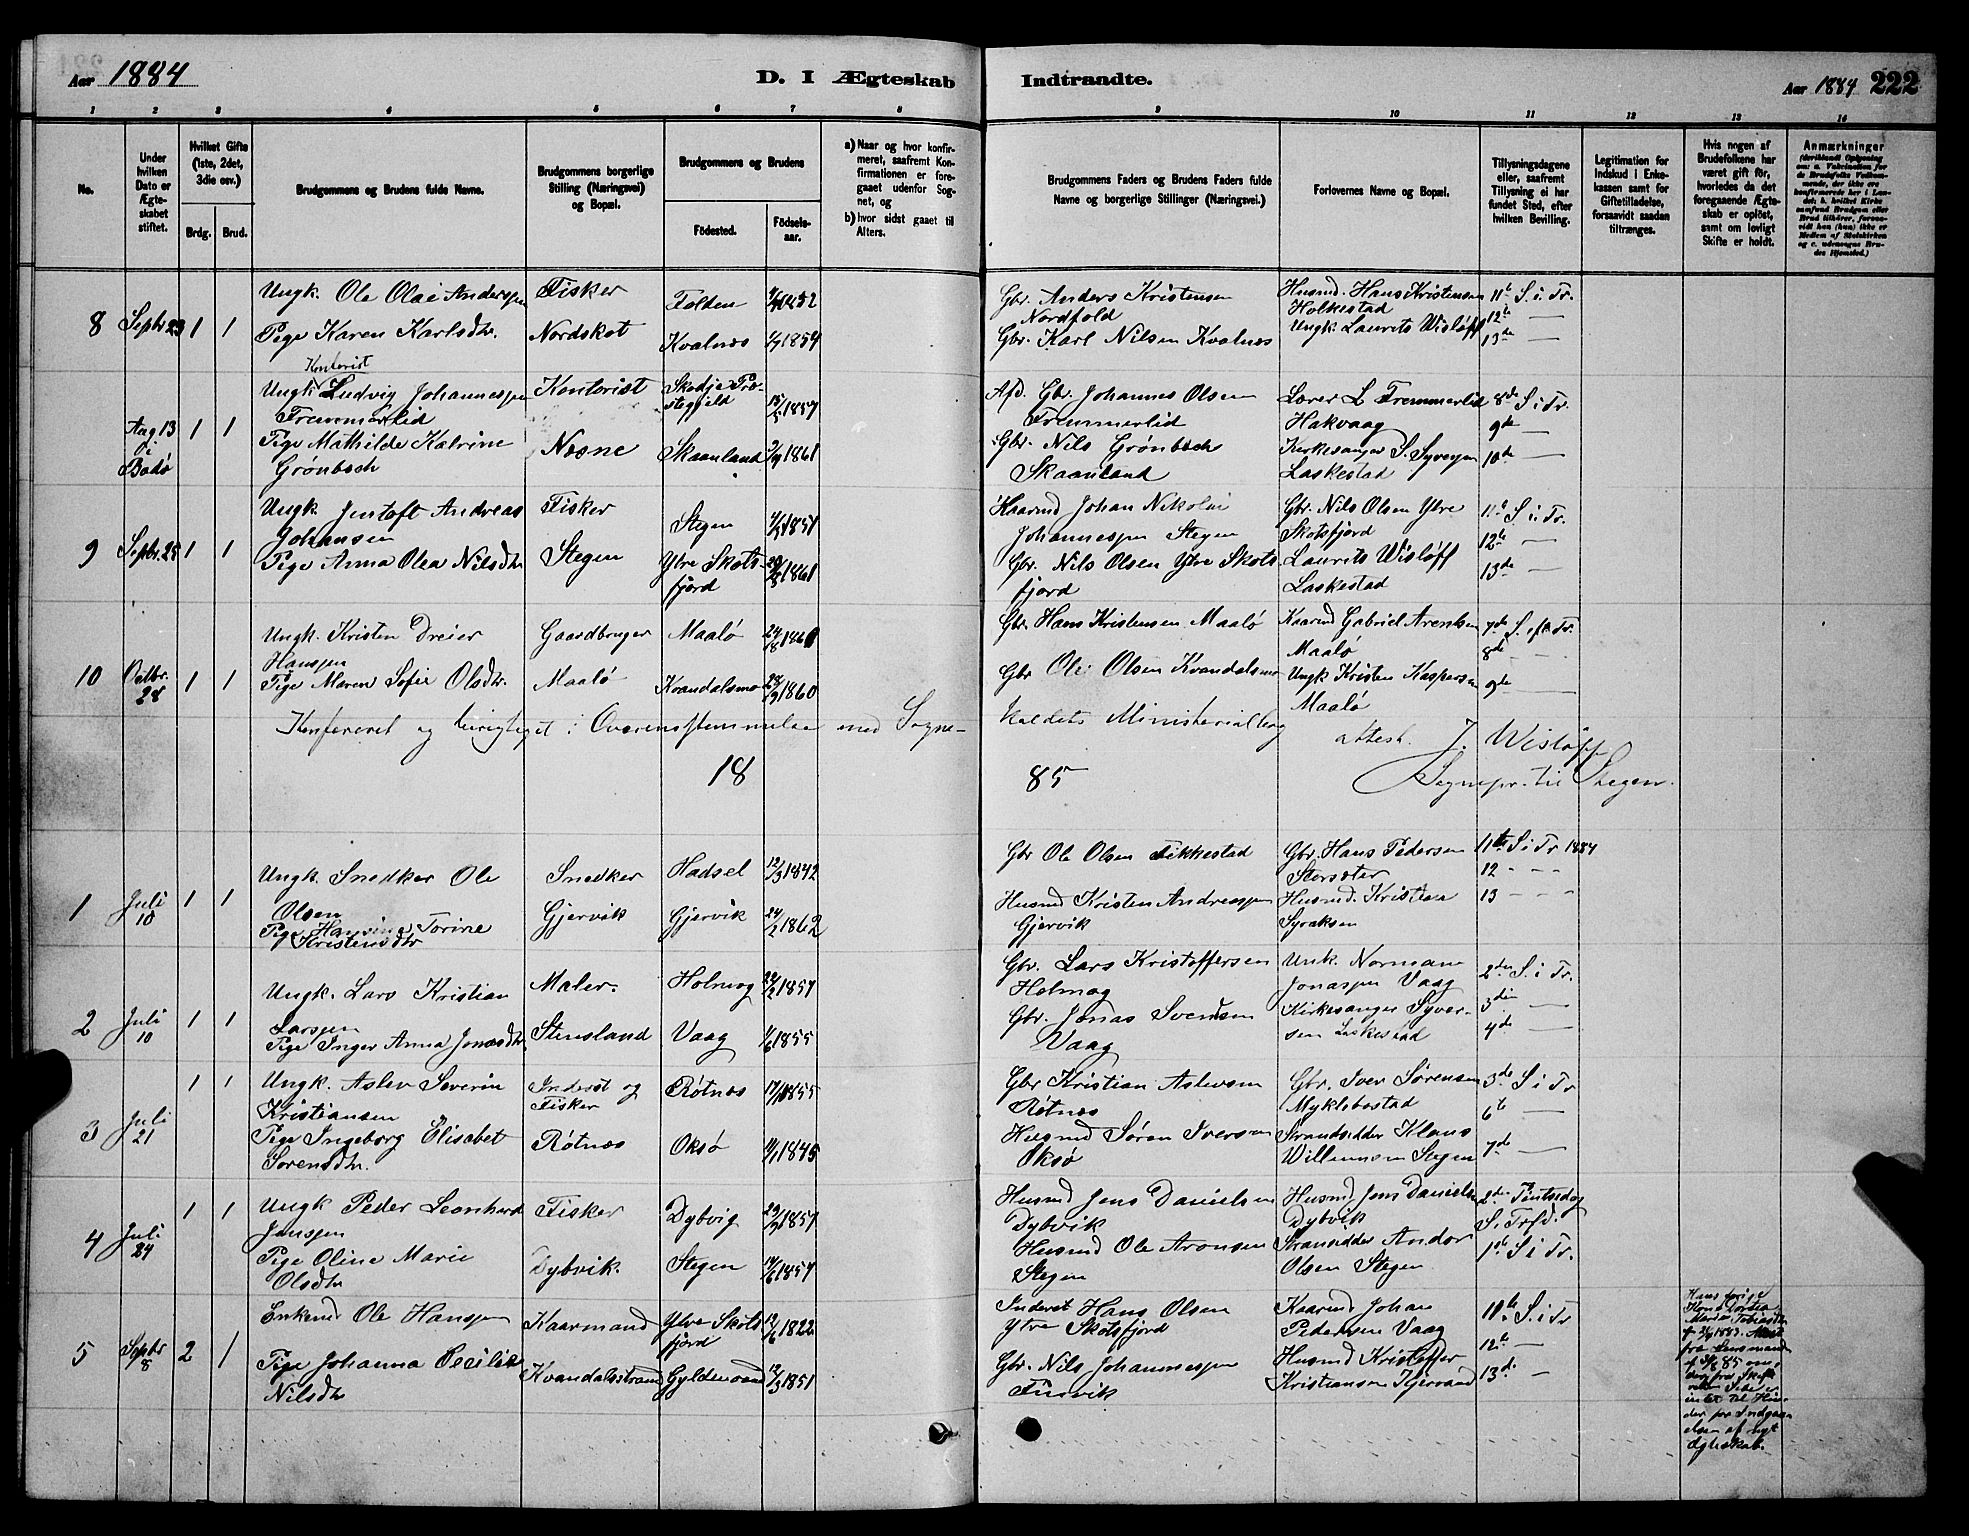 Aar 1884
D. I Ægteskab
Indtraadte.
Aar 1884 222
1 2 3 4 5 6 7 8 9 10 11 12 13 14
No.
Under hvilken Dato er Ægteskabet stiftet.
Hvilket Gifte (1ste, 2det, 3die osv.)
Brdg. Brud.
Brudgommens og Brudens fulde Navne.
Brudgommens borgerlige Stilling (Næringsvei) og Bopæl.
Brudgommens og Brudens
Födested. Födselsaar.
a) Naar og hvor konfirmeret, saafremt Konfirmationen er foregaaet udenfor Sognet, og
b) hvor sidst gaaet til Alters.
Brudgommens Faders og Brudens Faders fulde Navne og borgerlige Stillinger (Næringsvei.)
Forlovernes Navne og Bopæl.
Tillysningsdagene eller, saafremt Tillysning ei har fundet Sted, efter hvilken Bevilling.
Legitimation for Indskud i Enkekassen samt for Giftetilladelse, forsaavidt saadan tiltrænges.
Hvis nogen af Brudefolkene har været gift för, hvorledes da det foregaaende Ægteskab er oplöst, samt om lovligt Skifte er holdt.
Anmærkninger
8 Septbr 23 1 1
Ungk. Ole Olai Anderssen
Pige Karen Karlsdtr.
Fisker
Nordskot
Folden
Kvalnes 1854
Gbr. Anders Kristensen
Nordfold
Gbr. Karl Nilsen Kvalnes
Husmd. Hans Kristensen
Holkestad
Ungk Laurits Wisløff
11te S. i. Tr.
12te —
13de —
Aug 13 i Bodø 1 1
Kontorist
Ungk Ludvig Johannessen
Fremmerlid
Pige Mathilde Katrine
Grønbech
Kontorist
Nesne
Skodje Præstegjeld 1857
Skaanland 1861
Afd. Gbr. Johannes Olsen
Fremmerlid
Gbr. Nils Grønbech
Skaanland
Lærer L Fremmerlid
Hakvaag
Kirkesanger S. Syversen
Laskestad
8de S i Tr.
9de —
10de —
9 Septbr. 25 1 1
Ungk. Jentoft Andreas
Johansen
Pige Anna Olea Nilsdtr
Fisker
Stegen
Stegen
Ytre Skotsfjord 1861
Kaarmd Johan Nikolai
Johannessen Stegen
Gbr. Nils Olsen Ytre Skotsfjord
Gbr. Nils Olsen Ytre
Skotsfjord
Laurits Wisløff
Laskestad
11te S. i. Tr.
12te —
13de —
10 Octbr. 28 1 1
Ungk. Kristen Dreier
Hanssen
Pige Maren Sofie Olsdtr.
Gaardbruger
Maalø
Maalø
Kvandalsmo 1860
Gbr. Hans Kristensen Maalø
Gbr Ole Olsen Kvandalsmo
Kaarmd Gabriel Arentsen
Maalø
Ungk Kristen Kaspersen
Maalø
7de S. eft. Tr.
8de —
9de —
Konfereret og berigtiget i Overensstemmelse med Sognekaldets Ministerialbog
attest. J. Wisløff
Sognepr. til Stegen.
18 85
1 Juli 10 1 1
Ungk. Snedker Ole
Olsen
Pige Hansine Torine
Kristensdtr
Snedker
Gjervik
Hadsel 12/3 1842
Gjervik 1862
Gbr Ole Olsen Fikkestad
Husmd Kristen Andreassen
Gjervik
Gbr. Hans Pedersen
Storsæter
Husmd. Kristian
Syraksen
11te S i Tr 1884
12 - - -
13 - - -
2 Juli 10 1 1
Ungk. Lars Kristian
Larssen
Pige Inger Anna Jonasdtr
Maler.
Stensland
Holmog 1857
Vaag 1855
Gbr. Lars Kristoffersen
Holmog
Gbr. Jonas Svendsen
Vaag
Unk. Normann
Jonassen Vaag
Kirkesanger Syversen Laskestad
2den S. i Tr.
3die —
4de —
3 Juli 21 1 1
Ungk. Aslev Severin
Kristiansen
Pige Ingeborg Elisabet
Sørensdtr.
Inderst og
Fisker
Røtnes
Røtnes 1855
Oksø 1845
Gbr Kristian Aslevsen
Røtnes
Husmd Søren Iversen
Oksø
Gbr. Iver Sørensen
Myklebostad
Strandsidder Klaus
Willumsen Stegen
3de S i Tr
6te —
7de —
4 Juli 24 1 1
Ungk Peder Leonhard
Jenssen
Pige Oline Marie
Olsdtr
Fisker
Dybvik.
Dybvig 1857
Stegen 1857
Husmd Jens Danielsen
Dybvik
Husmd Ole Aronsen
Stegen
Husmd Jens Danielsen
Dybvik
Strandsidder Andor
Olsen Stegen
2den Pintsedag
S. Trfd.
1ste S i Tr.
5 Septbr 8 2 1
Enkemd Ole Hanssen
Pige Johanna Cecilie
Nilsdtr
Kaarmand
Kvandalsstrand
Ytre Skotsfjord 1822
Gyldenvand 12/3 1851
Inderst Hans Olsen
Ytre Skotsfjord
Gbr. Nils Johannessen
Furvik
Kaarmd Johan
Pedersen Vaag
Husmd Kristoffer
Kristiansen Kjervand
11te S i Tr
12te —
13de —
Hans forige
Kone Dortea
Maria Tobiasdtr
Attest
fra Lensmanden
85 om,
der fra Skifteretten Side er
intet til Hinder for Indgaaelsen af nyt
Ægteskab.